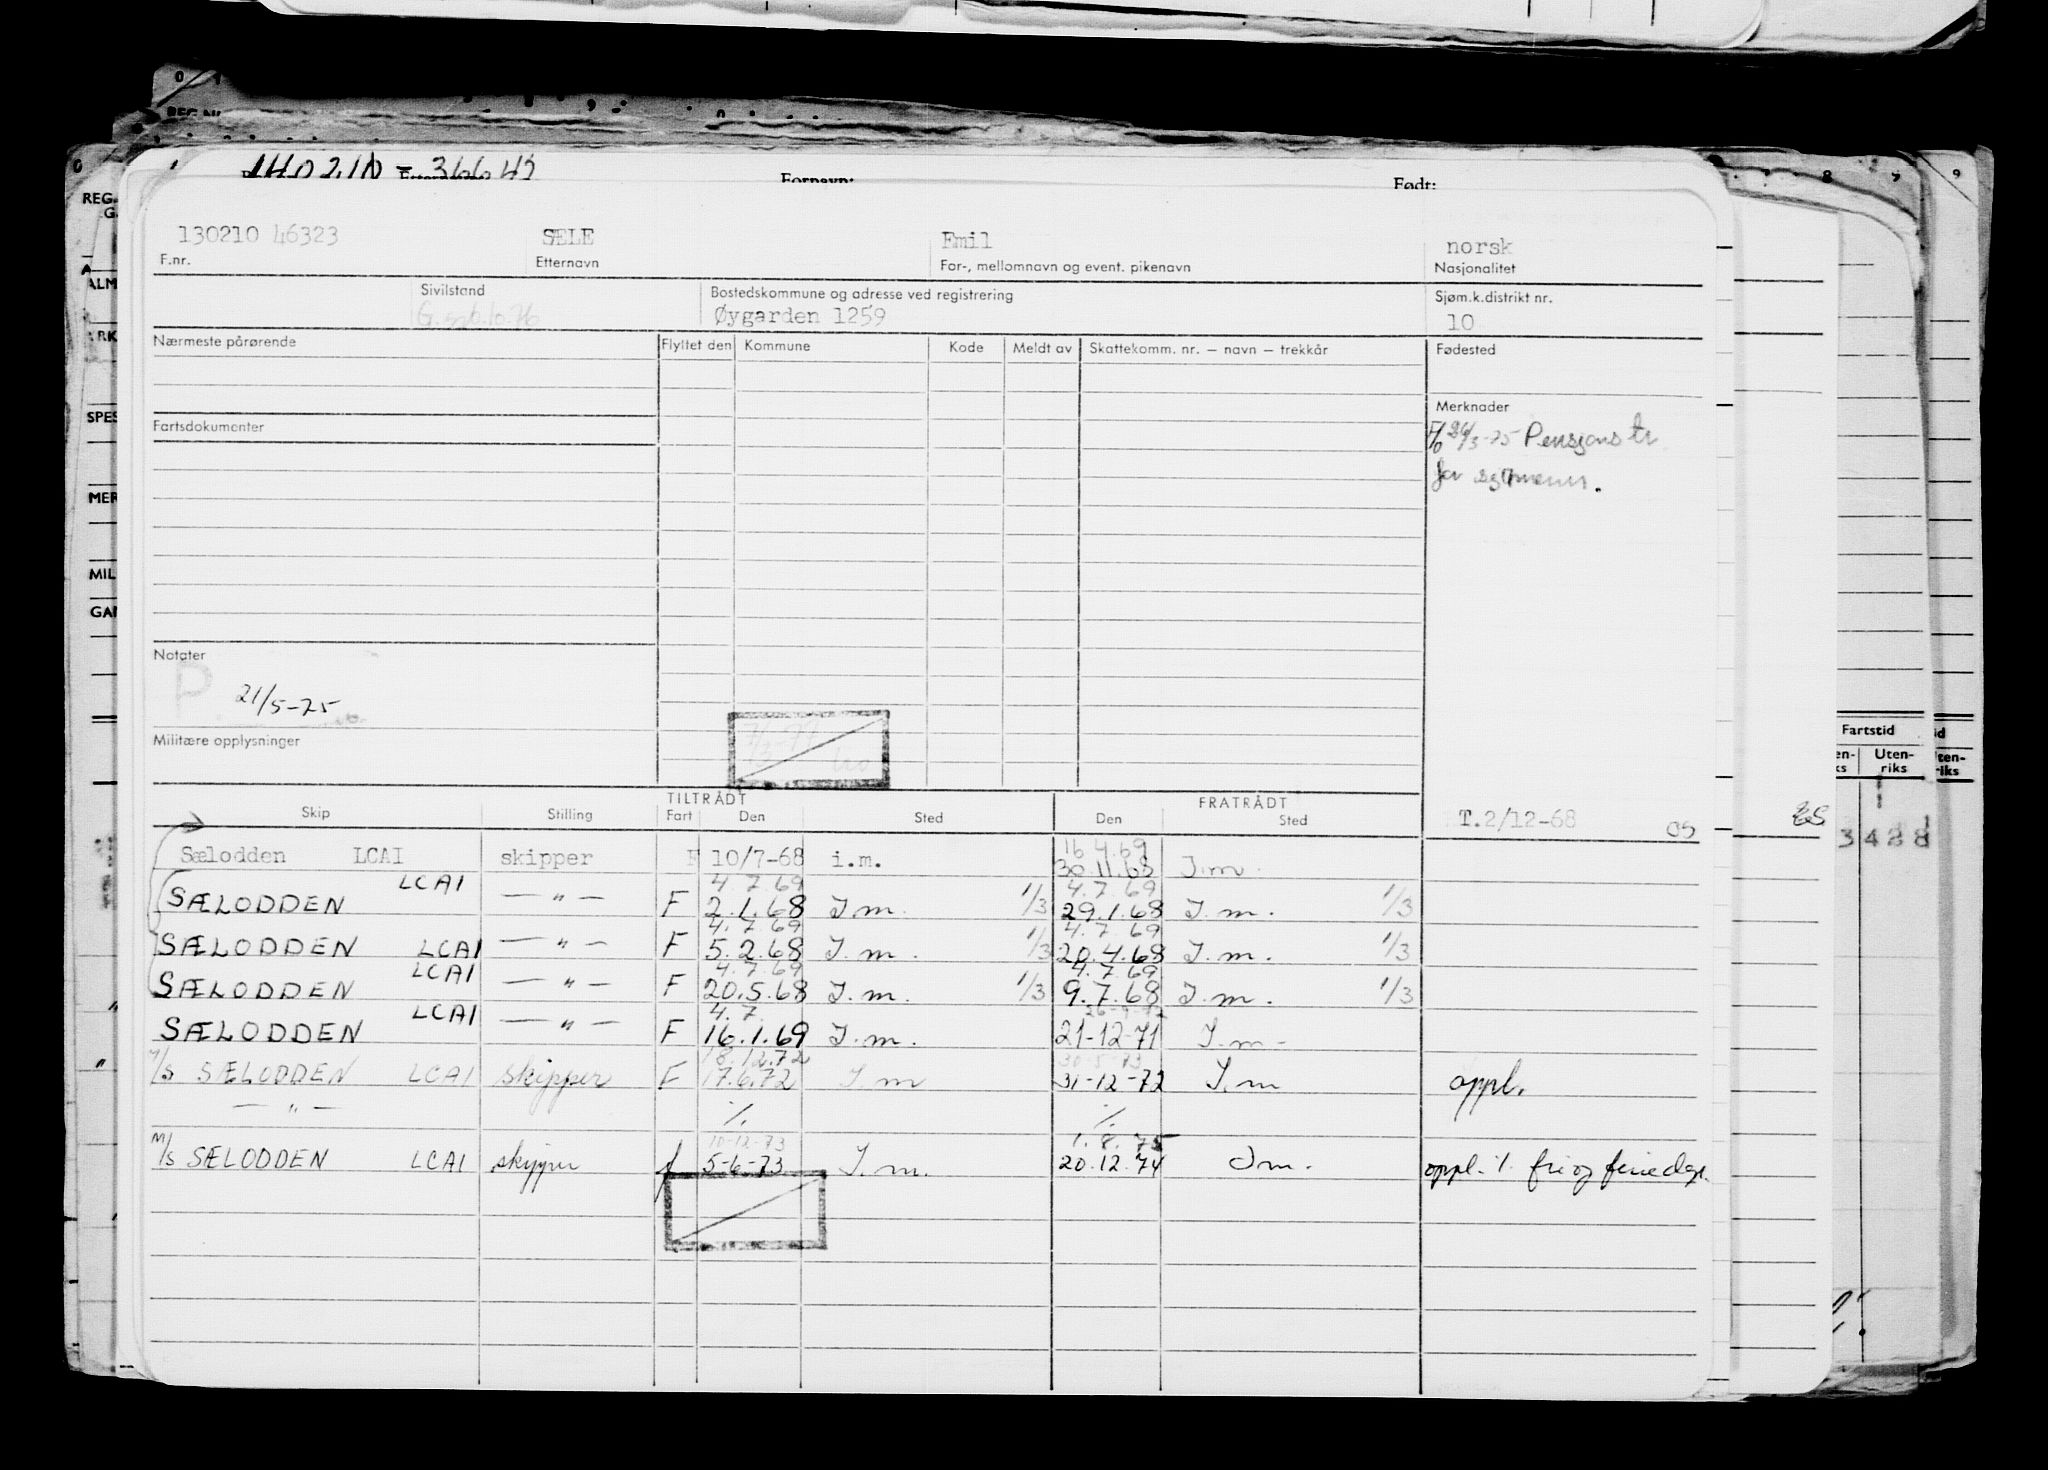 140210 - 36645
Fornavn: Født:
130210 46323 SÆLE Emil norsk
F.nr. Etternavn For-, mellomnavn og event. pikenavn Nasjonalitet
Sivilstand Bostedskommune og adresse ved registrering Sjøm.k.distrikt nr.
Øygarden 1259 10
Nærmeste pårørende Flyttet den Kommune Kode Meldt av Skattekomm. nr. — navn — trekkår Fødested
Merknader
Fartsdokumenter
Pensjons tr.
for sjømenn.
Notater
P
21/5-75
Militære opplysninger
TILTRÅDT FRATRÅDT
Skip Stilling Fart Den Sted Den Sted T.2/12-68 OS
16 4.69
Sælodden LCAI skipper F 10/7-68 i.m. 30.11.68 I.m.
4.7.69 4.7.69
SÆLODDEN LCAI — " — F 2.1.68 I.m. 1/3 29.1.68 I.m. 1/3
4.7.69 4.7.69
SÆLODDEN LCAI — " — F 5.2.68 I.m. 1/3 20.4.68 I.m. 1/3
4.7.69 4.7.69
SÆLODDEN LCAI — " — F 20.5.68 I.m. 1/3 9.7.68 I.m. 1/3
4.7.
SÆLODDEN LCAI — " — F 16.1.69 I.m. 21-12-71 I.m-
18.12.72 30-5-73
M/S SÆLODDEN LCAI skipper F 17.6.72 I.m 31-12-72 I.m oppl.
— " — ./. ./.
10-12-73 1.8.75
M/S SÆLODDEN LCAI skipper f 5-6-73 I.m. 20.12.74 Im. oppl. ./. fri og feriedager
REG.
G.
ALM
SPES
MER
MIL
GAN
Fartstid
Uten-
riks
3 428